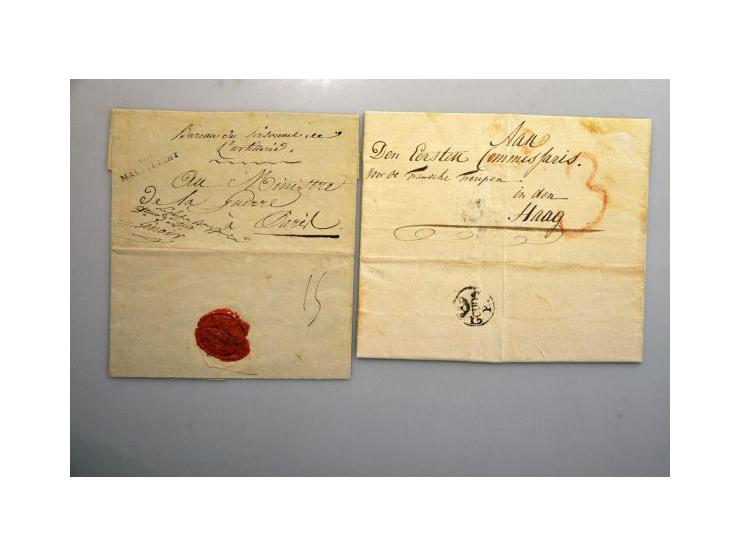 Bureau du Personnel de
L'artillerie.
MAESTRICHT
Au Ministre
De la Guerre
à Paris
15
Aan
Den Eersten Commissaris.
voor de Fransche Troupen
in den
Haag
3
15